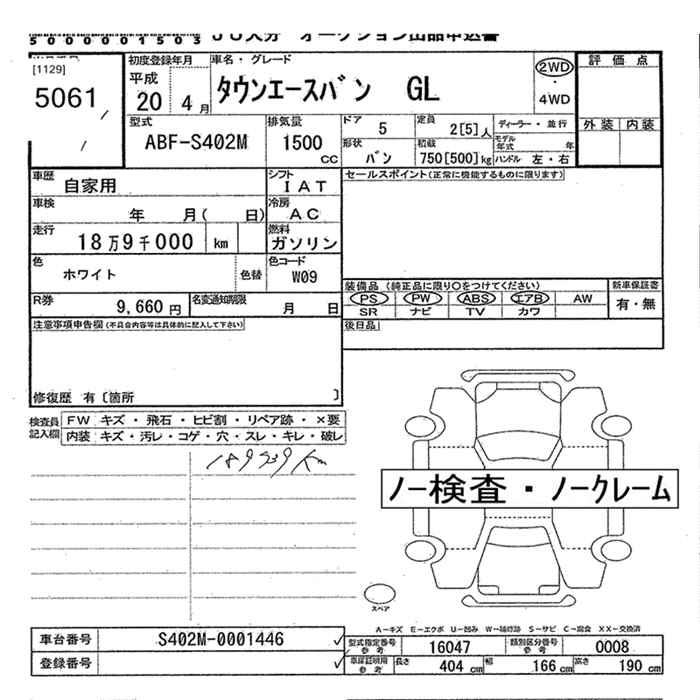 5000001503 JU大分 オークション出品申込書
[1129]
5061
初度登録年月
平成
20 4月
車名・グレード
タウンエースバン GL
2WD
・
4WD
評価点
外装 内装
型式
ABF-S402M
排気量
1500
CC
ドア
5
定員
2[5]人
ディーラー・並行
モデル年式 年
形状
バン
積載
750[500]kg
ハンドル 左・右
車歴
自家用
シフト
IAT
セールスポイント(正常に機能するものに限ります)
車検
年 月( 日)
冷房
AC
走行
18万9千000 km
燃料
ガソリン
色
ホワイト
色替
色コード
W09
装備品 (純正品に限り○をつけてください)
新車保証書
PS PW ABS エアB AW
有・無
SR ナビ TV カワ
R券
9,660円
名変通知期限
月 日
後日品
注意事項申告欄(不具合内容等は具体的に記入して下さい)
修復歴 有〔箇所 〕
検査員記入欄
FW キズ・飛石・ヒビ割・リペア跡・×要
内装 キズ・汚レ・コゲ・穴・スレ・キレ・破レ
ノー検査・ノークレーム
スペア
A-キズ E-エクボ U-凹み W-補修跡 S-サビ C-腐食 XX-交換済
車台番号
S402M-0001446
型式指定番号
参考
16047
類別区分番号
参考
0008
登録番号
車庫証明用
参考
長さ
404 cm
幅
166 cm
高さ
190 cm